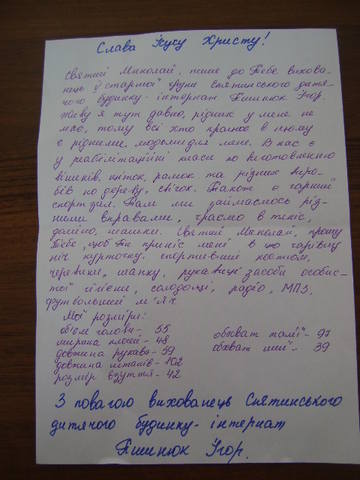 Слава Ісусу Христу!
Святий Миколай, пише до Тебе вихова-
нець старшої групи Снятинського дитя-
чого будинку-інтернат Пшинюк Ігор.
Живу я тут давно, рідних у мене не
має, тому всі хто працює в ньому
є рідними людьми для мене. В нас є
у реабілітаційні класи по виготовленню
віників, щіток, рамок та різних виро-
бів по дереву, свічок. Також є гарний
спортзал. Там ми займаємось різ-
ними вправами, граємо в теніс,
доміно, шашки. Святий Миколай, прошу
Тебе, щоб Ти приніс мені в цю чарівну
ніч курточку, спортивний костюм,
черевики, шапку, рукавиці, засоби особис-
тої гігієни, солодощі, радіо, МПЗ,
футбольний м'яч.
Мої розміри:
об'єм голови - 55
ширина плечей - 48
довжина рукава - 59
довжина штанів - 102
розмір взуття - 42
обхват талії - 97
обхват шиї - 39
З повагою вихованець Снятинського
дитячого будинку-інтернат
Пшинюк Ігор.